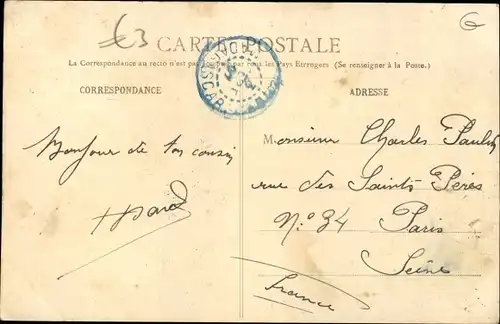 €3
G
CARTE POSTALE
La Correspondance au recto n'est pas pour tous les Pays Etrangers (Se renseigner à la Poste.)
MADAGASCAR
CORRESPONDANCE
ADRESSE
Bonjour de ton cousin
Monsieur Charles
rue des Saints Pères
N.o 34 Paris
Seine
France